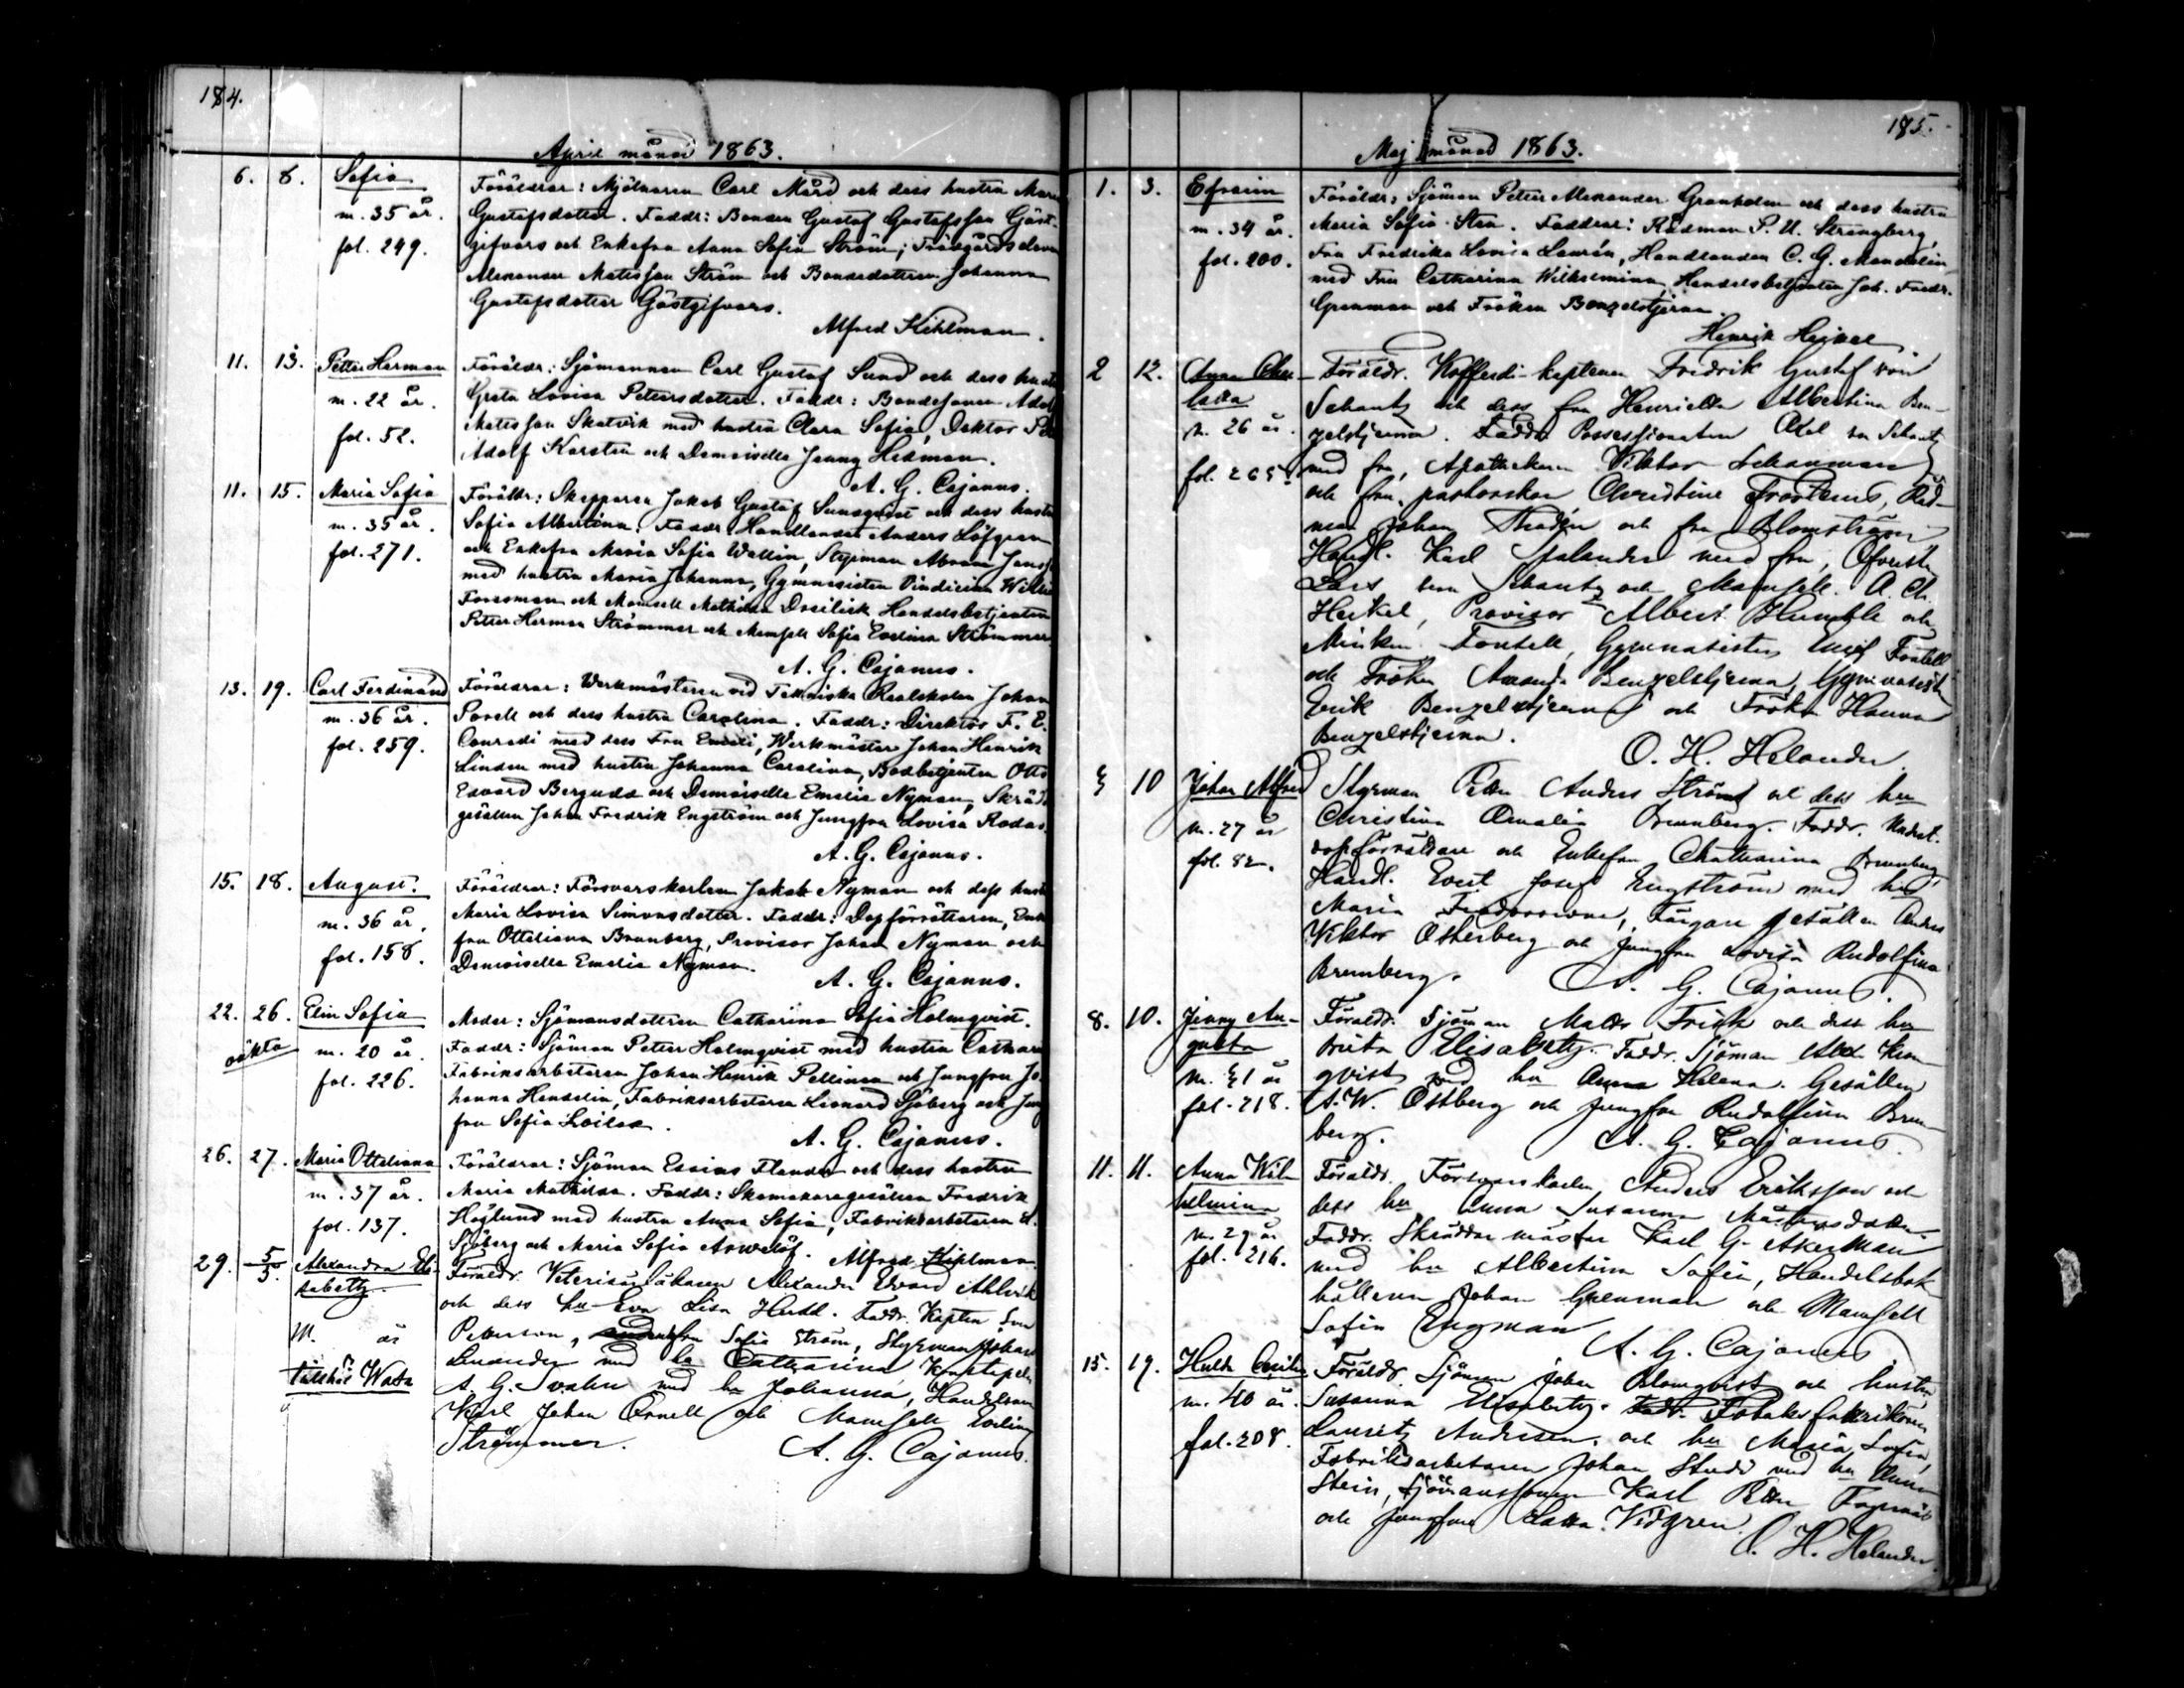 184.
April månad 1863.
6. 8. Sofia
m. 35 år.
fol. 249.
Föräldrar: Mjölnaren Carl Mård och dess hustru Maria
Gustafsdotter. Faddr: Bonden Gustaf Gustafsson Gäst-
gifvars och Enkefru Anna Sofia Ström; Trädgårds
Alexander Matsson Ström och Bondedottren Johanna
Gustafsdotter Gästgifvars.
Alfred Kihlman.
11. 13. Petter Herman
m. 22 år.
fol. 52.
Föräldr: Sjömannen Carl Gustaf Sund och dess
Greta Lovisa Petersdotter. Faddr: Bondesonen
Matsson Skatvik med hustru Clara Sofia, Doktor
Adolf Karsten och Demoiselle Jenny Hedman.
A. G. Cajanus.
11. 15. Maria Sofia
m. 35 år.
fol. 271.
Föräldr: Skepparen Jakob Gustaf Sundqvist och dess hustru
Sofia Albertina. Faddr: Handlanden Anders Löfgren
och Enkefru Maria Sofia Wallin, Styrman Abram
med hustru Maria Johanna, Gymnasisten
Forssman och Mamsell Mathilda Handelsbetjenten
Petter Herman Strömmer och Mamsell Sofia Evelina Strömmer
A. G. Cajanus.
13. 19. Carl Ferdinand
m. 36 år.
fol. 259.
Föräldrar: Werkmästeren vid Tekniska Realskolan Johan
och dess hustru Carolina. Faddr: Direktör F. E.
Conradi med dess Fru Emeli, Werkmäster Johan Henrik
Linden med hustru Johanna Carolina, Bodbetjenten Otto
Edvard Bergudd och Demoiselle Emelie Nyman,
gesällen Johan Fredrik Engström och Jungfru Lovisa
A. G. Cajanus.
15. 18. August.
m. 36 år.
fol. 158.
Föräldrar: Försvarskarlen Jakob Nyman och dess hustru
Maria Lovisa Simonsdotter. Faddr: Dopförrättaren,
fru Ottiliana Brunberg, Provisor Johan Nyman och
Demoiselle Emelie Nyman.
A. G. Cajanus.
22. 26. Elin Sofia
oäkta
m. 20 år.
fol. 226.
Moder: Sjömansdottren Catharina Sofia Holmqvist.
Faddr: Sjöman Petter Holmqvist med hustru
Fabriksarbetaren Johan Henrik Pellinen och Jungfru Jo-
hanna Hendelin, Fabriksarbetaren Leonard Sjöberg och
fru Sofia
A. G. Cajanus.
26. 27. Maria Ottiliana
m. 37 år.
fol. 137.
Föräldrar: Sjöman Esaias Flander och dess hustru
Maria Mathilda. Faddr: Skomakaregesällen Fredrik
Höglund med hustru Anna Sofia, Fabriksarbetaren
Sjöberg och Maria Sofia
Alfred Kihlman
29. 5/5. Alexandra Eli-
sabeth.
m. år
Föräldr. Veterinärläkaren Alexander Edvard Ahlvik
och dess hu Eva Lisa Heddl. Faddr. Kapten
Peterson, Sofia Ström, Styrman Johan
med hu Catharina Konstapel
A. G. Svahn med hu Johanna,
Karl Johan Örnell och Mamsell
Strömmer.
A. G. Cajanus.
185.
Maj månad 1863.
1. 3. Efraim
m. 34 år.
fol. 200.
Föräldr: Sjöman Petter Alexander Granholm och dess hustru
Maria Sofia Sten. Faddrar: Rådman P. U. Strengberg,
Fru Fredrika Lovisa Laurén, Handlanden C. G. Mandelin
med Fru Catharina Wilhelmina, Handelsbetjenten Joh. Fredr.
Grenman och Fröken Benzelstjerna.
Henrik Heikel
2 12. Anna
m. 26 år.
fol. 265.
Föräldr. Kofferdi-kaptenen Fredrik Gustaf von
Schantz och dess fru Henriette Albertina Ben-
zelstjerna. Faddr. Possessionaten Axel von Schantz
med fru, Apothekaren Viktor Schauman
och fru, pastorskan Christine Frosterus, Råd-
man Johan Thodén och fru Blomström
Handl. Karl Spolander med fru, Öfverste
Lars von Schantz och Mamsell A. Ch.
Heikel, Provisor Albert Humble och
Fontell, Gymnasisten Emil Fontell
och Fröken Amanda Benzelstjerna, Gymnasist
Erik Benzelstjerna och Fröken Hanna
Benzelstjerna.
O. H. Helander.
10 Johan Alfred
m. 27 år
fol. 82.
Styrman Petter Anders Ström och dess hu
Christina Amalia Brunberg. Faddr.
dopförrättare och Enkefru Chatharina Brunberg,
Handl. Evert Josef Engström med hu
Maria Färgare gesällen Anders
Viktor Österberg och Jungfru Lovisa Rudolfina
Brunberg.
A. G. Cajanus.
8. 10. Jenny Au-
gusta
fol. 218.
Föräldr. Sjöman Matts Frisk och dess hu
Elisabeth. Faddr. Sjöman Alex
qvist med hu Anna Helena. Gesällen
A. W. Östberg och Jungfru Rudolfina Brun-
berg.
A. G. Cajanus
11. 11. Anna Wil-
helmina
m. 29 år
fol. 216.
Föräldr. Försvarskarlen Anders Eriksson och
dess hu Anna Susanna Mattsdotter.
Faddr. Skräddarmäster Karl G. Åkerman
med hu Albertina Sofia, Handelsbok-
hållaren Johan Grenman och Mamsell
Sofia Engman
A. G. Cajanus
15. 19. Hulda Cecilia
m. 40 år.
fol. 208.
Föräldr. Sjöman Johan Blomqvist och hustru
Susanna Elisabeth. Faddr. Tobaksfabrikören
Lauritz Andersen och hu Maria Sofia,
Fabriksarbetaren Johan med hu Anna
Stein, Sjömanssonen Karl Petter
och Jungfru Vidgren.
O. H. Helander.